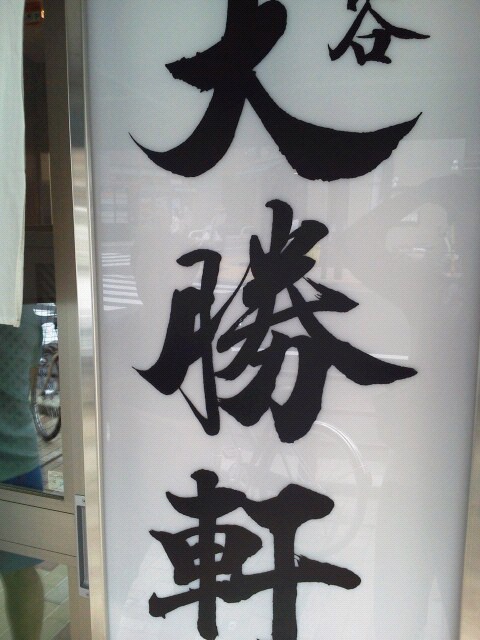 谷
大勝軒